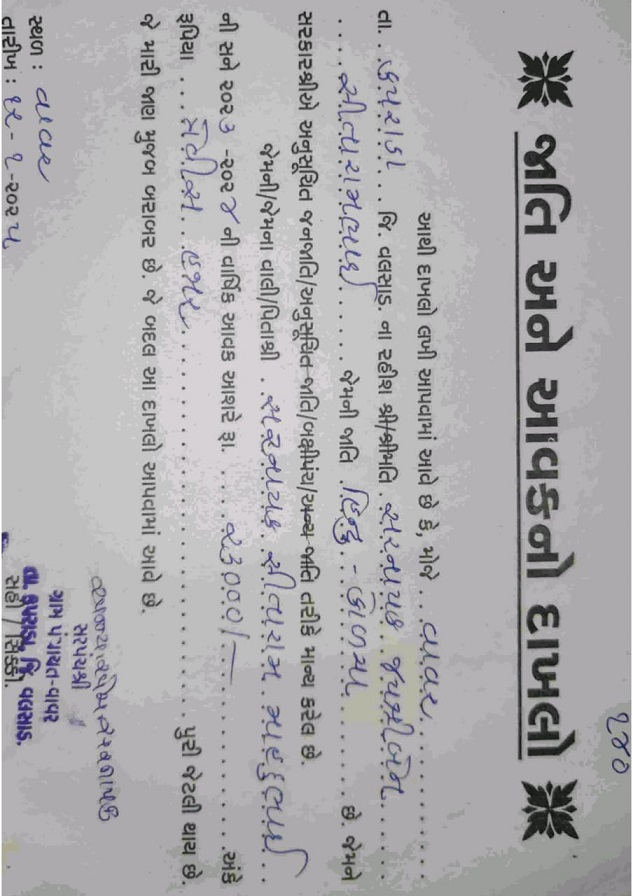 ૨૪૦
જાતિ અને આવકનો દાખલો
આથી દાખલો લખી આપવામાં આવે છે કે, મોજે ... વાવર
તા. કપરાડા જિ. વલસાડ. ના રહીશ શ્રી/શ્રીમતિ . સરનાયક જયશ્રીબેન
સીતારામભાઈ જેમની જાતિ . હિન્દુ - કોળચા છે. જેમને
સરકારશ્રીએ અનુસૂચિત જનજાતિ/અનુસૂચિત જાતિ/બક્ષીપંચ/અન્ય જાતિ તરીકે માન્ય કરેલ છે.
જેમની/જેમના વાલી/પિતાશ્રી . સરનાયક સીતારામ
ની સને ૨૦૨૩ -૨૦૨૪ ની વાર્ષિક આવક આશરે રૂા. ૨૩૦૦૦/- અંકે
રૂપિયા ... ત્રેવીસ હજાર પુરી જેટલી થાય છે.
જે મારી જાણ મુજબ બરાબર છે. જે બદલ આ દાખલો આપવામાં આવે છે.
સ્થળ : વાવર
તારીખ : ૧૨-૬-૨૦૨૫
સરપંચશ્રી
ગ્રામ પંચાયત-વાવર
તા. કપરાડા, જિ. વલસાડ.
સહી / સિક્કો.